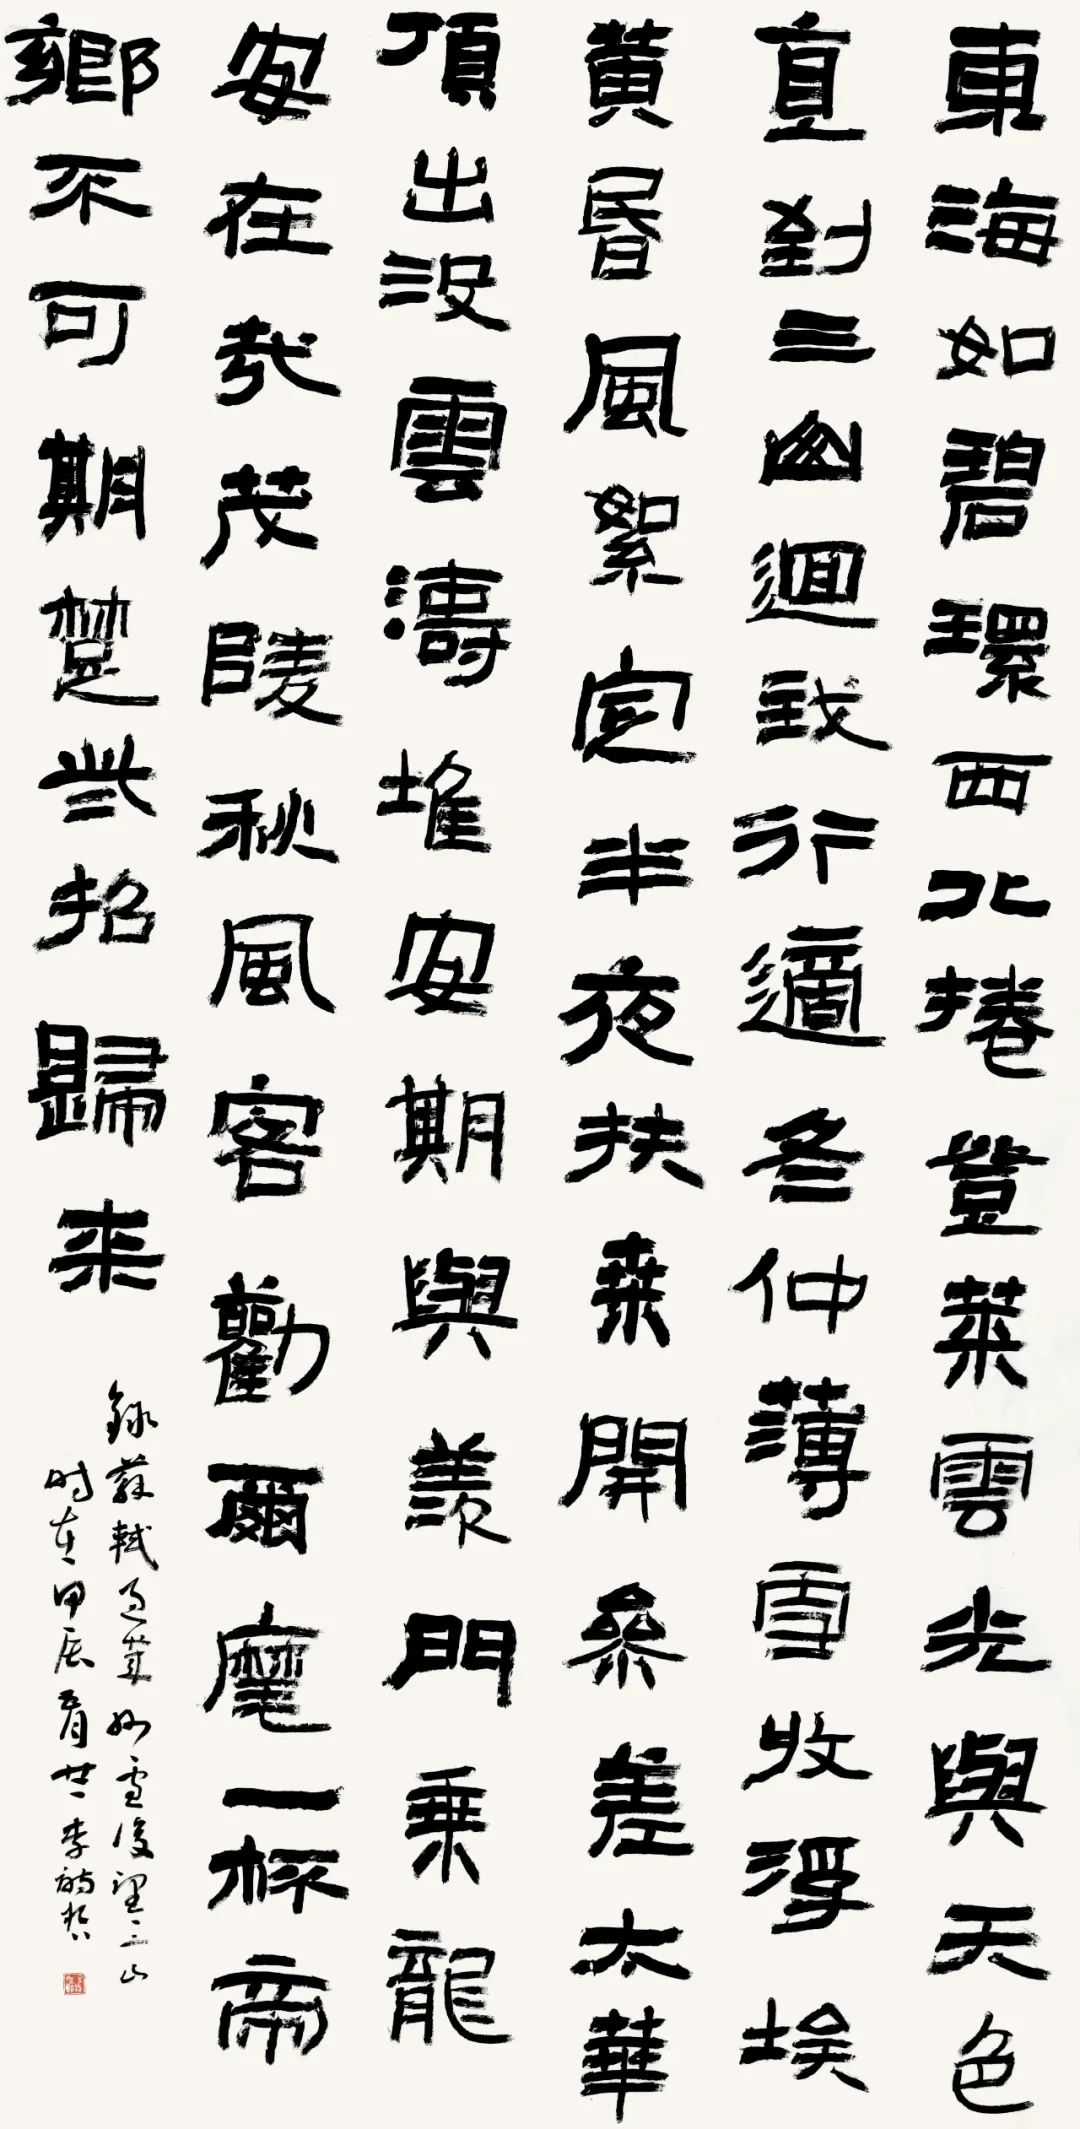 東海如碧環西北捲登萊雲光與天色
直到三山迴我行適冬仲薄雪收浮埃
黃昏風絮定半夜扶桑開參差太華
頂出沒雲濤堆安期與羨門乘龍
安在哉茂陵秋風客勸爾麾一杯帝
鄉不可期楚些招歸来
錄蘇軾過萊州雪後望三山
时在甲辰廿一李